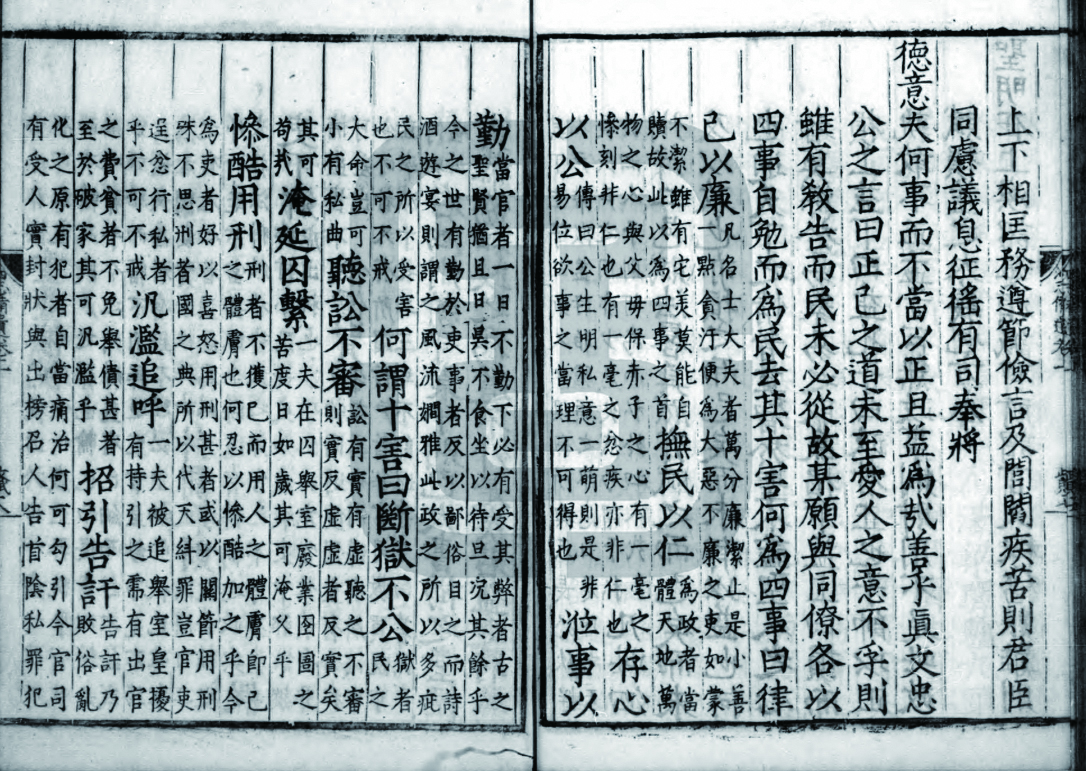 上下相匡務遵節儉言及閭閻疾苦則君臣
同慮議息征徭有司奉將
德意夫何事而不當以正且益為㢤善乎真文忠
公之言曰正己之道未至愛人之意不孚則
雖有教告而民未必從故某願與同僚各以
四事自勉而為民去其十害何為四事曰律
己以廉凡名士大夫者萬分廉潔止是小善一點貪汙便為大惡不廉之吏如蒙
不潔雖有它美莫能自贖故此以為四事之首撫民以仁為政者當體天地萬
物之心與父母保赤子之心有一毫之慘刻非仁也有一毫之忿疾亦非仁也存心
以公傳曰公生明私意一萌則是非易位欲事之當理不可得也涖事以
勤當官者一日不勤下必有受其弊者古之聖賢猶且日昃不食坐以待旦況其餘乎
今之世有勤於吏事者反以鄙俗目之而詩酒遊宴則謂之風流嫻雅此政之所以多疵
民之所以受害也不可不戒何謂十害曰斷獄不公獄者民之
大命豈可小有私曲聽訟不審訟有實有虛聽之不審則實反虛虛者反實矣
其可苟㢤淹延囚繫一夫在囚舉室廢業囹圄之苦度日如歲其可淹久乎
慘酷用刑刑者不獲已而用人之體膚即己之體膚也何忍以慘酷加之乎今
為吏者好以喜怒用刑甚者或以關節用刑殊不思刑者國之典所以代天糾罪豈官吏
逞忿行私者乎不可不戒汎濫追呼一夫被追舉室皇擾有持引之需有出官
之費貧者不免舉債甚者至於破家其可汎濫乎招引告訐告訐乃敗俗亂
化之原有犯者自當痛治何可勾引今官司有受人實封狀與出榜召人告首陰私罪犯